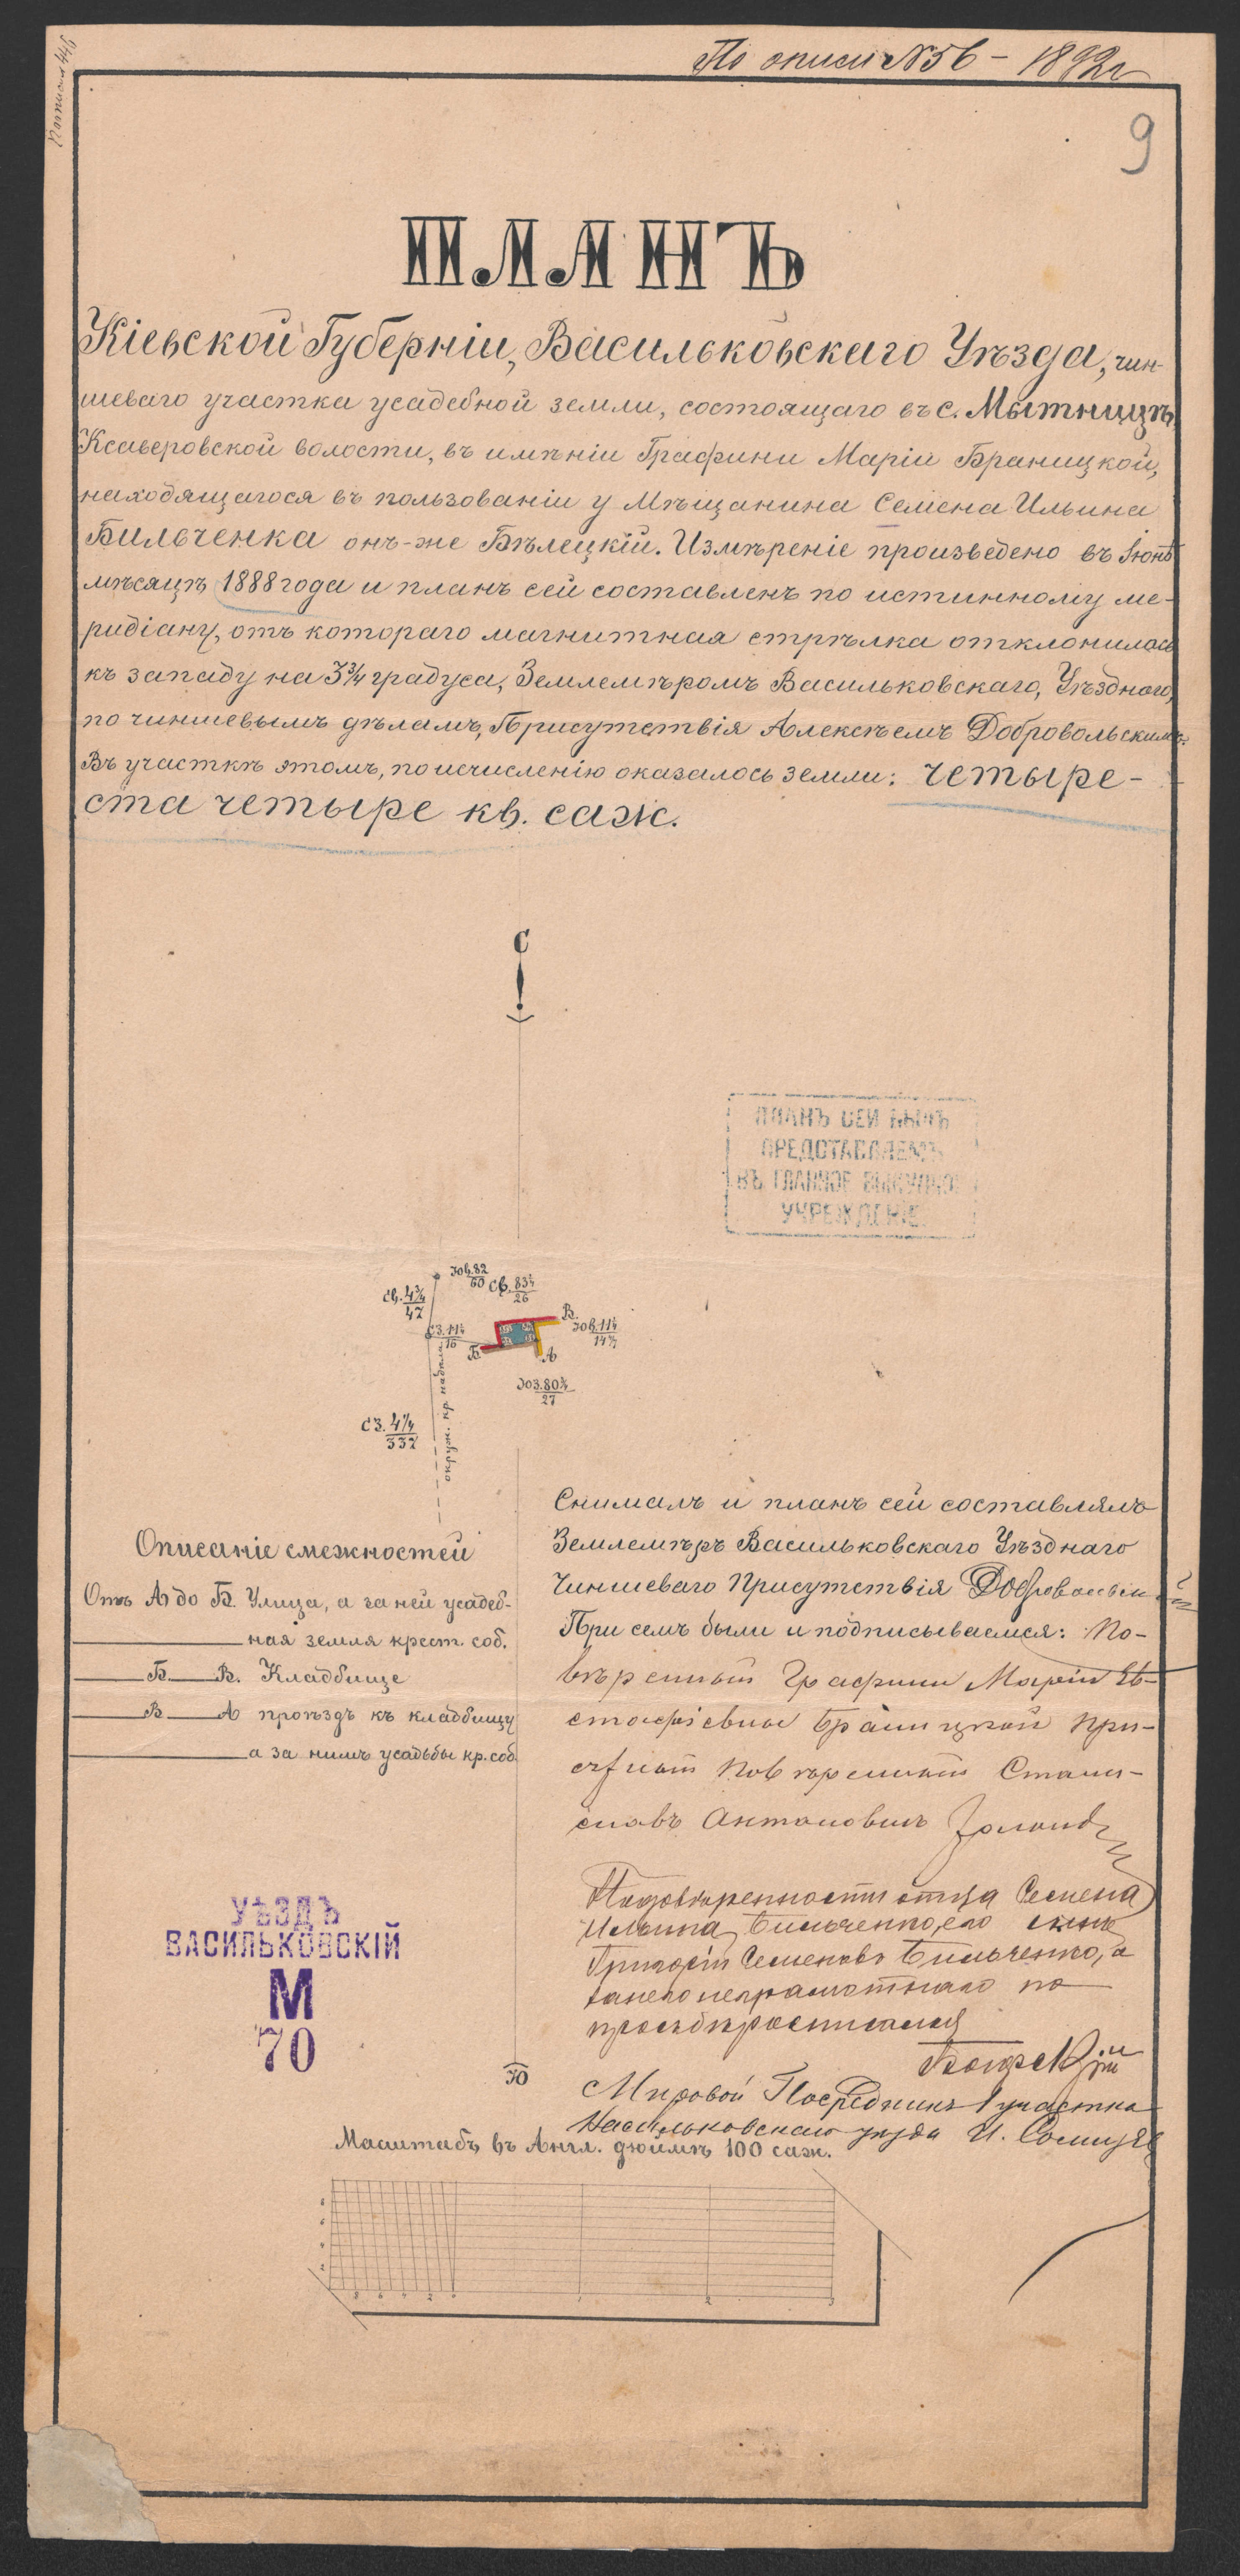 По описи №56 – 1892г
9
ПЛАНЪ
Кіевской Губерніи, Васильковскаго Уѣзда, чин-
шеваго участка усадебной земли, состоящаго въ с. Мытницѣ,
Ксаверовской волости, въ имѣніи Графини Маріи Браницкой,
находящагося въ пользованіи у Мѣщанина Семена Ильина
Бильченка онъ-же Бѣлецкій. Измѣреніе произведено въ Іюнѣ
мѣсяцѣ 1888 года и планъ сей составленъ по истинному ме-
ридіану, отъ котораго магнитная стрѣлка отклонилась
къ западу на 3¾ градуса, Землемѣромъ Васильковскаго, Уѣзднаго,
по чиншевымъ дѣламъ, Присутствія Алексѣемъ Добровольскимъ.
Въ участкѣ этомъ, по исчисленію оказалось земли: четыре-
ста четыре кв. саж.
С
ПЛАНЪ СЕЙ БЫЛЪ
ПРЕДСТАВЛЯЕМЪ
ВЪ ГЛАВНОЕ ВЫКУПНОЕ
УЧРЕЖДЕНІЕ.
ЮВ. 82/60
СВ. 83¼/26
СВ. 4¾/47
В.
СЗ. 11¼/16
ЮВ. 11¼/14½
Б
А
ЮЗ. 80¾/27
СЗ. 4¼/332
окруж. кр. надѣла
Описаніе смежностей
Отъ А до Б. Улица, а за ней усадеб-
ная земля крест. соб.
Б. В. Кладбище
В А проѣздъ къ кладбищу
а за нимъ усадьбы кр. соб.
Снималъ и планъ сей составлялъ
Землемѣръ Васильковскаго Уѣзднаго
Чиншеваго Присутствія Добровольскій
При семъ были и подписываемся: По-
вѣренный Графини Маріи Ев-
стафіевны Браницкой При-
сяжный Повѣренный Стани-
славъ Антоновичъ
По довѣренности отца Семена
Ильина Бильченко, его сынъ
Григорій Семеновъ Бильченко, а
за него неграмотнаго по
просьбѣ росписался
Мировой Посредникъ 1 участка
Васильковскаго уѣзда И.
УѢЗДЪ
ВАСИЛЬКОВСКІЙ
М
70
Ю
Масштабъ въ Англ. дюймѣ 100 саж.
8
6
4
2
8 6 4 2 1 2 3